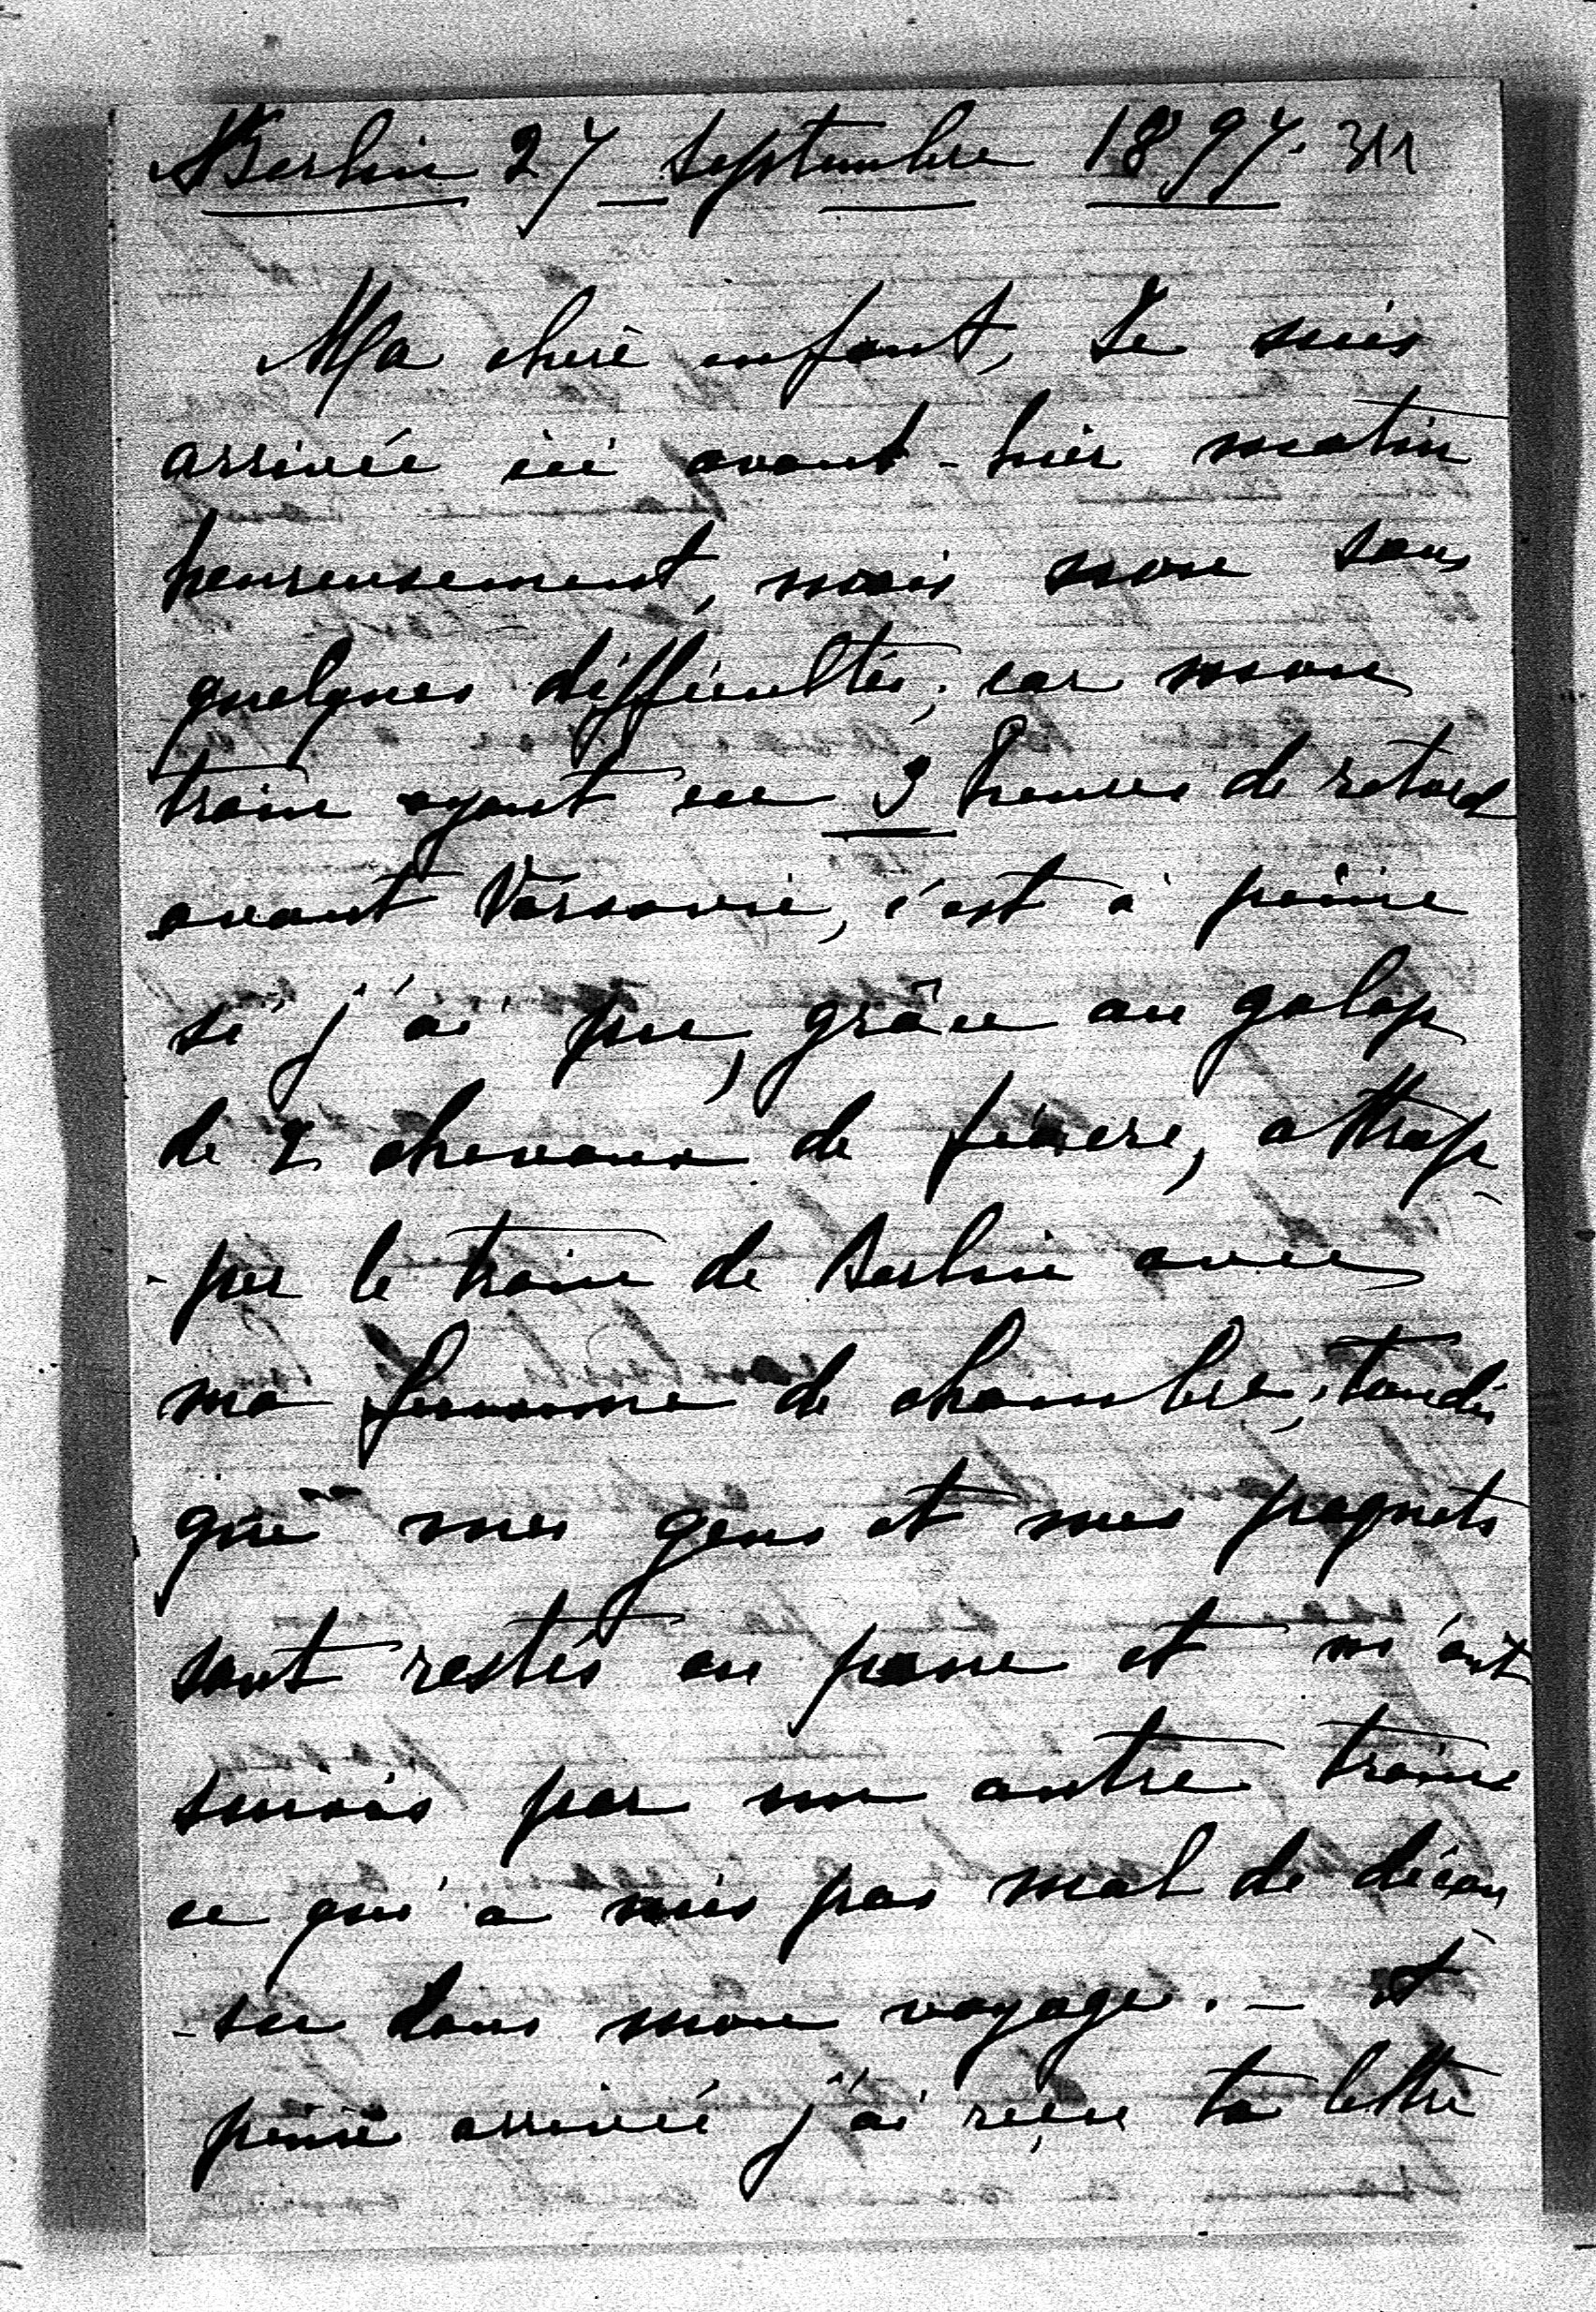 Berlin 27 septembre 1897. 311
Ma chère enfant, Je suis
arrivée ici avant-hier matin
heureusement, mais non sans
quelques difficultés, car mon
train ayant eu 3 heures de retard
avant Varsovie, c'est à peine
si j'ai pu, grâce au galop
de 2 chevaux de fiacre, attrap-
-per le train de Berlin avec
ma femme de chambre, tandis
que mes gens et mes paquets
sont restés en panne et m'ont
suivis par un autre train
ce qui a mis pas mal de décou
-su dans mon voyage. - A
peine arrivée j'ai reçu ta lettre